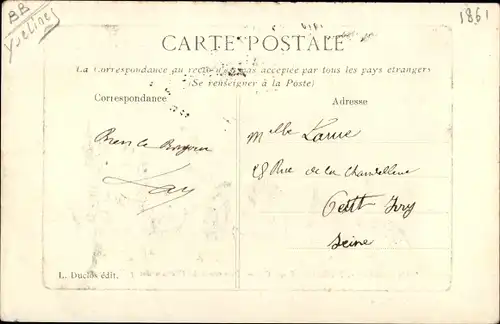 BB
Yvelines
1861
CARTE POSTALE
La Correspondance au recto n'est pas acceptée par tous les pays étrangers
(Se renseigner à la Poste)
Correspondance
Adresse
Bien le Bonjour
Melle Larue
28 Rue de la
Petit Ivry
Seine
L. Duclos édit.